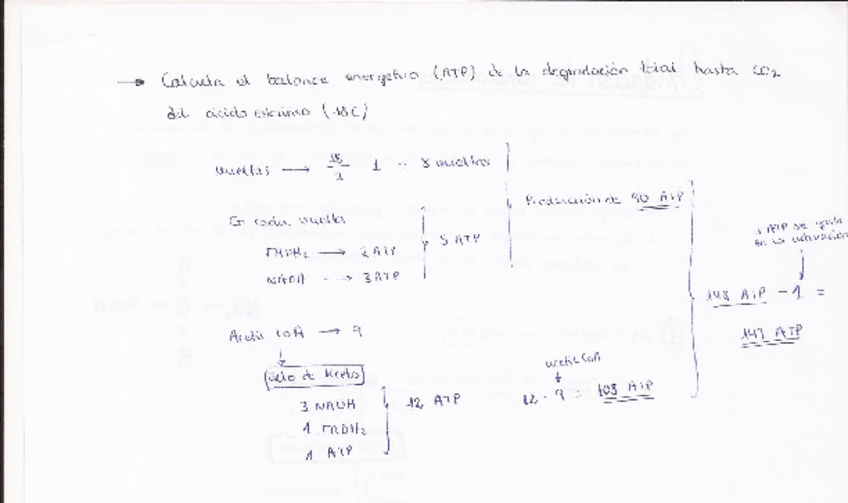 → Calcula el balance energético (ATP) de la degradación total hasta CO₂
del ácido esteárico (18C)
Vueltas → 18/2 - 1 = 8 vueltas
En cada vuelta
FADH₂ → 2 ATP
NADH → 3 ATP
5 ATP
Producción de 40 ATP
Acetil CoA → 9
Ciclo de Krebs
3 NADH
1 FADH₂
1 ATP
12 ATP
acetil CoA
12 · 9 = 108 ATP
1 ATP se gasta
en la activación
148 ATP - 1 =
147 ATP